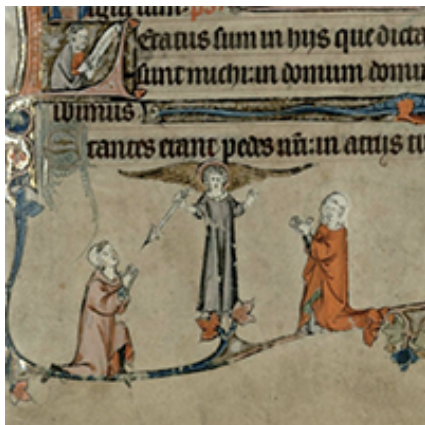 Letatus sum in hijs que dicta
sunt michi: in domum domi
ibimus
Stantes erant pedes nr̄i: in atrijs